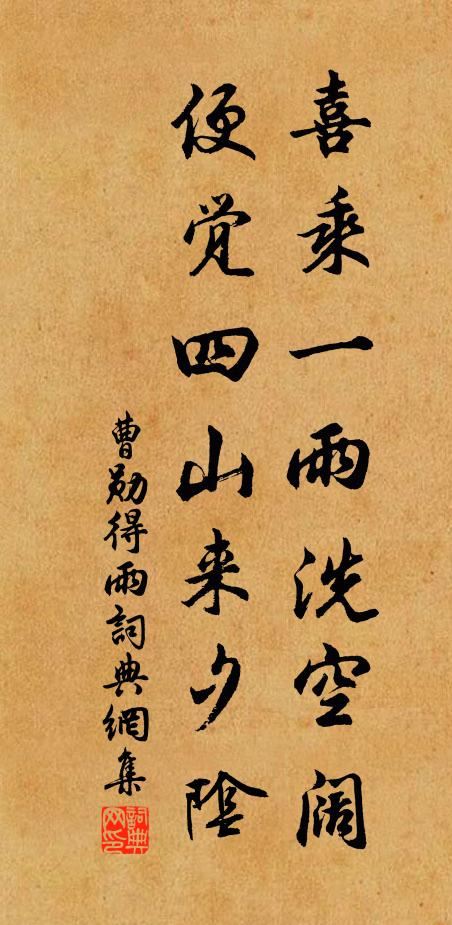 喜乘一雨洗空阔
便觉四山来夕陰
曹勋得雨詞典網集
詞典网印